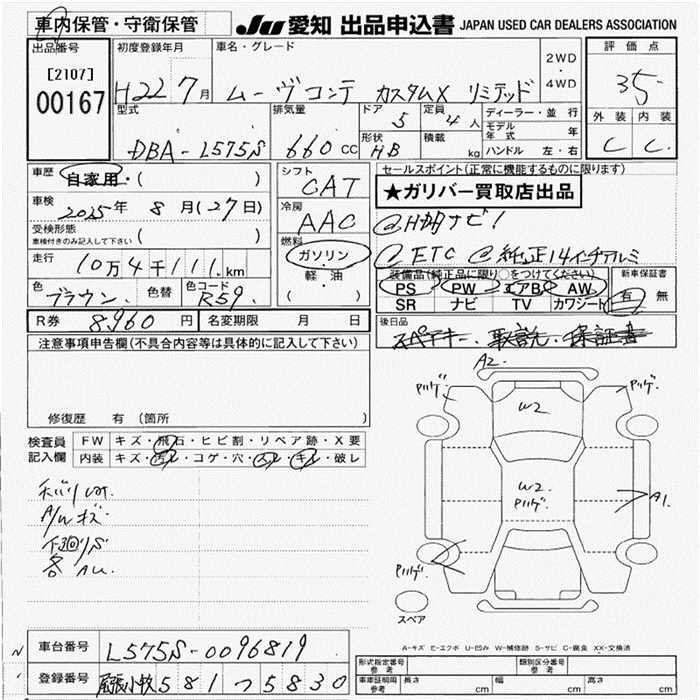 車内保管・守衛保管
JU 愛知 出品申込書 JAPAN USED CAR DEALERS ASSOCIATION
出品番号 初度登録年月 車名・グレード 2WD ・ 4WD 評価点
[2107] 00167 H22 7月 ムーヴコンテ カスタムX リミテッド 35
型式 排気量 ドア 5 定員 4人 ディーラー・並行 外装 内装
DBA-L575S 660cc 形状 HB 積載 kg モデル年式 年 C C
ハンドル 左・右
車歴 自家用・( ) シフト CAT セールスポイント(正常に機能するものに限ります)
★ガリバー買取店出品
車検 2025年 8月(27日) 冷房 AAC
受検形態 車検付きのみ記入して下さい ( ) 燃料 ガソリン・軽油 ( )
ETC 純正14インチアルミ
走行 10万4千111km
装備品(純正品に限り○をつけてください) 新車保証書
PS PW エアB AW 有 無
SR ナビ TV カワシート
色 ブラウン 色替 色コード R59
R券 8960円 名変期限 月 日 後日品
スペアキー. 取説. 保証書
注意事項申告欄(不具合内容等は具体的に記入して下さい)
修復歴 有 (箇所
検査員記入欄 FW キズ・飛石・ヒビ割・リペア跡・X要
内装 キズ・汚レ・コゲ・穴・スレ・キレ・破レ
A/Wキズ
各AU.
A2.
W2
W2
A1.
スペア
A-キズ E-エクボ U-凹み W-補修跡 S-サビ C-腐食 XX-交換済
車台番号 L575S-0096819
登録番号 尾張小牧581つ5830
形式指定番号 参考 類別区分番号 参考
車庫証明用 参考 長さ cm 幅 cm 高さ cm